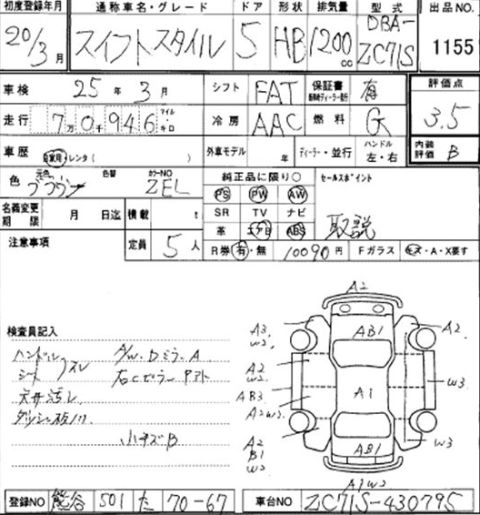 初度登録年月 通称車名・グレード ドア 形状 排気量 型式 出品NO
20/3月 スイフトスタイル 5 HB 1200cc DBA-ZC71S 1155
車検 25年3月 シフト FAT 保証書 有 評価点
走行 7万0946 マイル キロ 冷房 AAC 燃料 G 3.5
車歴 自家用・レンタ( ) 外車モデル 年 ディーラー・並行 ハンドル 左・右 内装評価 B
色 元色 色替 カラーNO ZEL 純正品に限り○ セールスポイント
名義変更期限 月 日迄 積載 t PS PW AW
SR TV ナビ
革 エアB ABS 取説
注意事項 定員 5人 R券 有・無 10090円 Fガラス キズ・A・X要す
検査員記入
ハンドルスレ A/W.DミラーA
シート
天井汚レ
小キズB
A2
A3 W2 AB1 A2
A2 W2
AB3 A1 W3
A2W3
A2 B1 W2 AB1 W3
A1W2
登録NO 熊谷 501 た 70-67 車台NO ZC71S-430795